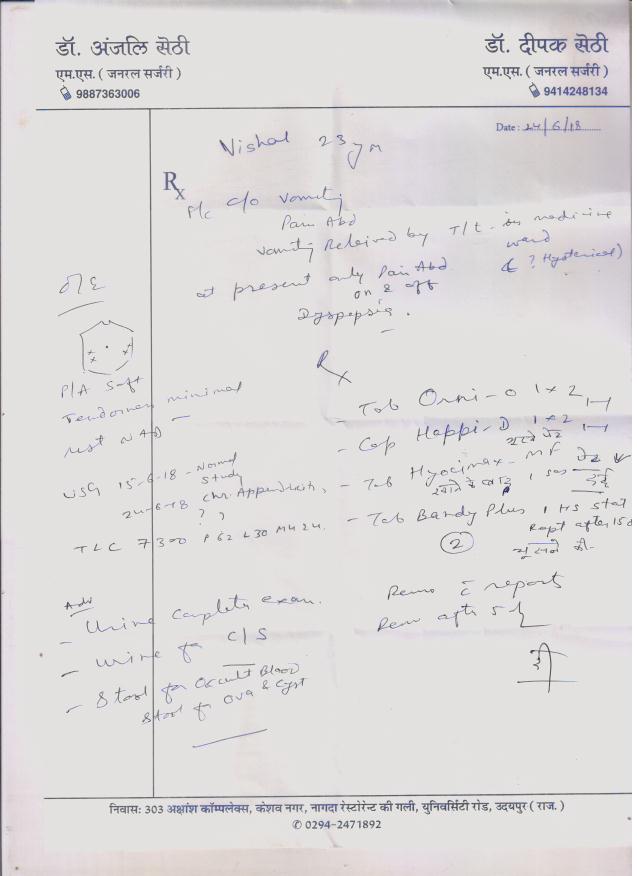 डॉ. अंजलि सेठी
एम.एस. ( जनरल सर्जरी )
9887363006
डॉ. दीपक सेठी
एम.एस. ( जनरल सर्जरी )
9414248134
Date : 24/6/18
Vishal 23 y m
Rx
P/c c/o vomiting
Pain Abd
vomiting Releived by T/t. in medicine ward
( ? Hysterical )
at present only Pain Abd
on & off
Dyspepsia.
O/E
P/A Soft
Tenderness minimal
rest NAD
USG 15-6-18 - Normal Study
24-6-18 Chr. Appendicitis
? ?
TLC 7300 P 62 L 30 M4 24.
Rx
- Tab Orni-O 1 x 2
- Cap Happi-D 1 x 2
- Tab Hyocimax-MF
खाने के बाद 1 sos दर्द
- Tab Bandy Plus 1 HS stat
Rept after 15 d
2
चूसने की
Adv
- Urine Complete exam.
- Urine for C/S
- Stool for Occult Blood
Stool for Ova & Cyst
Rev c report
Rev after 5 d
निवास: 303 अक्षांश कॉम्पलेक्स, केशव नगर, नागदा रेस्टोरेन्ट की गली, युनिवर्सिटी रोड, उदयपुर ( राज. )
✆ 0294-2471892